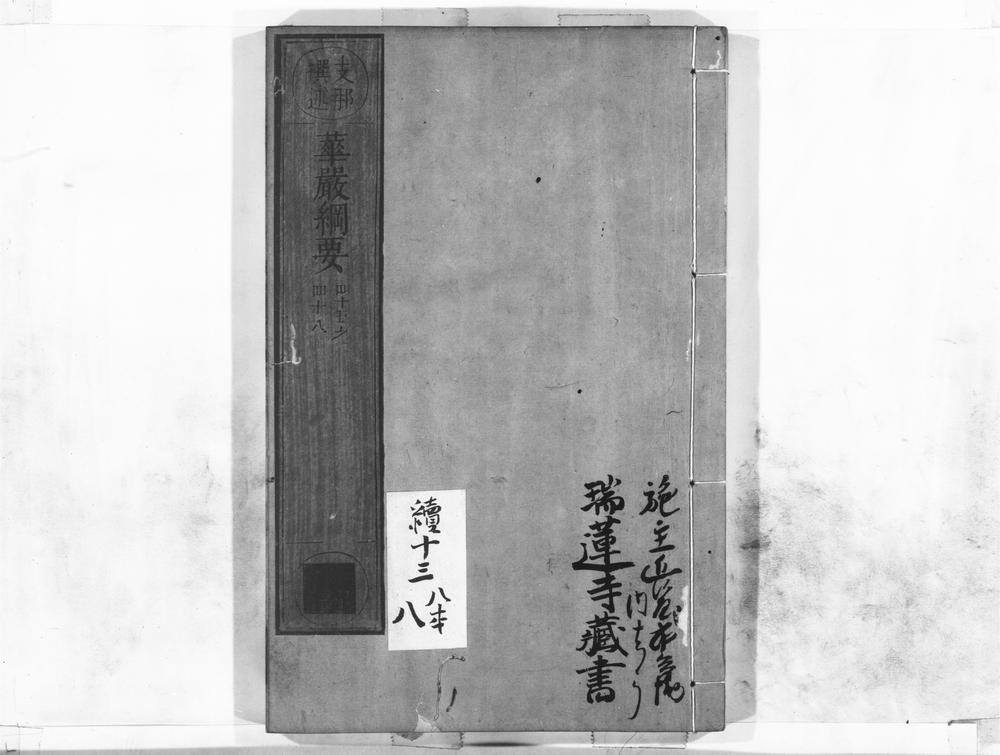 支那
撰述
華嚴綱要
四十五之
四十八
續十三
八本
八
施主
瑞蓮寺藏書